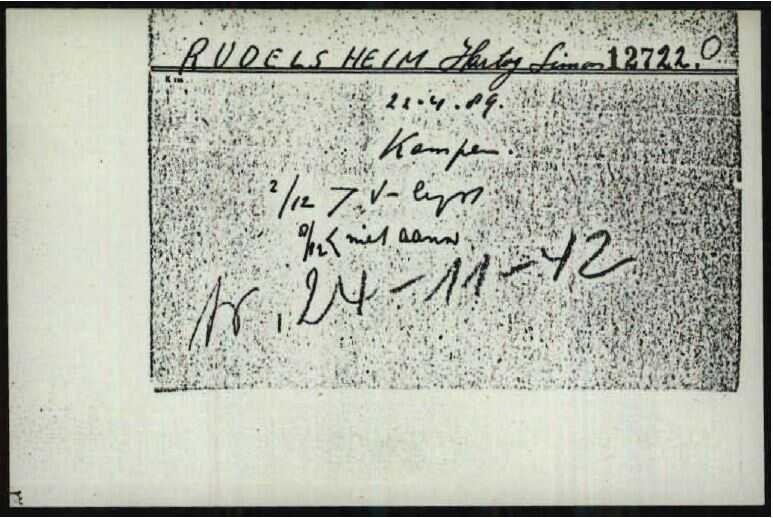 RUDELSHEIM Hartog Simon 12722. O
22-4-89.
Kampen.
2/12 > V-
8/12 < niet aanw
tr, 24-11-42